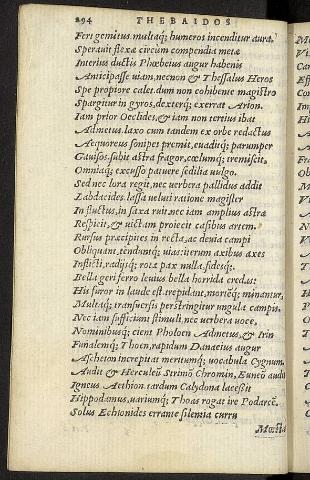 294 THEBAIDOS
Feri gemitus multaq; humeros incenditur aura.
Sperauit flexæ circum compendia metæ
Interius ductis Phœbeius augur habenis
Anticipasse uiam, nec non & Thessalus Heros
Spe propiore calet, dum non cohibente magistro
Spargitur in gyros, dexterq; exerrat Arion.
Iam prior Oeclides, & iam non tertius ibat
Admetus, laxo cum tandem ex orbe redactus
Aequoreus sonipes premit, euaditq; parumper
Gauisos, subit astra fragor, cœlumq; tremiscit,
Omniaq; excusso patuere sedilia uulgo.
Sed nec lora regit, nec uerbera pallidus addit
Labdacides, lassa ueluti ratione magister
In fluctus, in saxa ruit, nec iam amplius astra
Respicit, & uictam proiecit casibus artem.
Rursus præcipites in recta, ac deuia campi
Obliquant, tenduntq; uias: iterum axibus axes
Inflicti, radijsq; rotæ, pax nulla, fidesq;.
Bella geri ferro leuius bella horrida credas:
His furor in laude est, trepidant, mortẽq; minantur,
Multaq; transuersis perstringitur ungula campis,
Nec iam sufficiunt stimuli, nec uerbera uoce,
Nominibusq; cient Pholoën Admetus, & Irin
Funalemq; Thoen, rapidum Danaeius augur
Ascheton increpitat meritumq; uocabula Cygnum.
Audit & Herculeũ Strimõ Chromin, Euneõ audit
Igneus Aethion tardum Calydona lacessit
Hippodamus, uariumq; Thoas rogat ire Podarcẽ.
Solus Echionides errante silentia curru
Mœsta